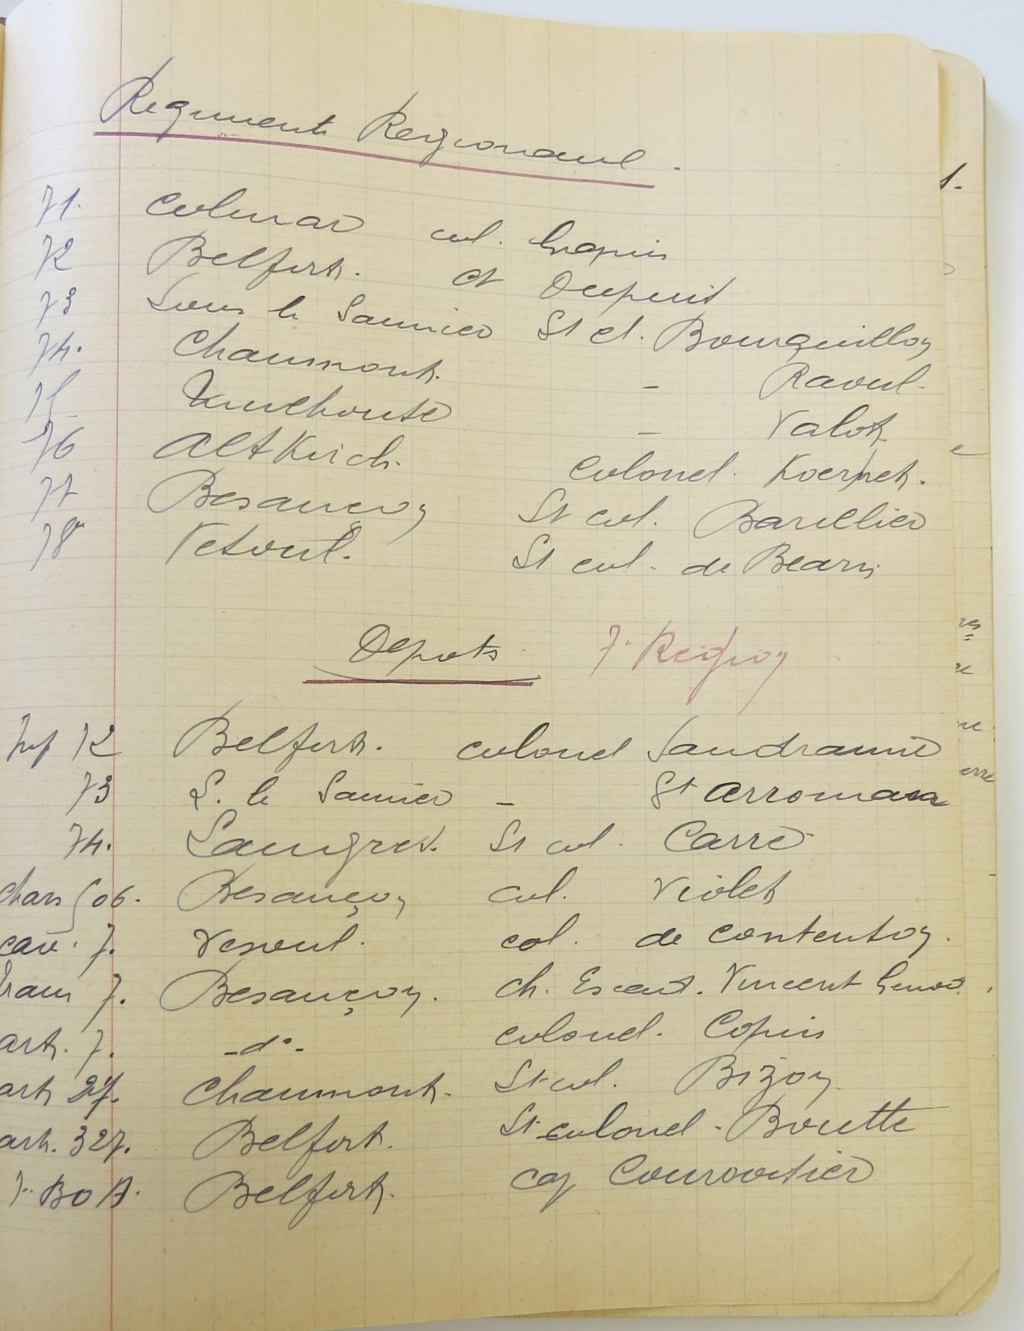 Regiments Regionaux.
71. Colmar col.
72 Belfort. et Dupuis
73 Lons le Saunier Lt cl. Bourguillon
74. Chaumont. - Raoul.
75 Mulhouse - Valot
76 Altkirch. Colonel. Koerper.
77 Besancon Lt col. Barillier
78 Vesoul. Lt col. de Bearn
Depots 7e Region
Inf 72 Belfort. colonel Jaudranne
73 L. le Saunier - St Arroman
74. Langres. Lt col. Carré
chars 506. Besançon, col. Violet
cav. 7. Vesoul. col. de Contentson.
train 7. Besançon. ch. Escad. Vincent
art. 7. -do- colonel. Copin
art 27. Chaumont. Lt col. Bizon
art. 327. Belfort. Lt colonel. Boutte
7e BOA. Belfort. cap Courvoisier
1.